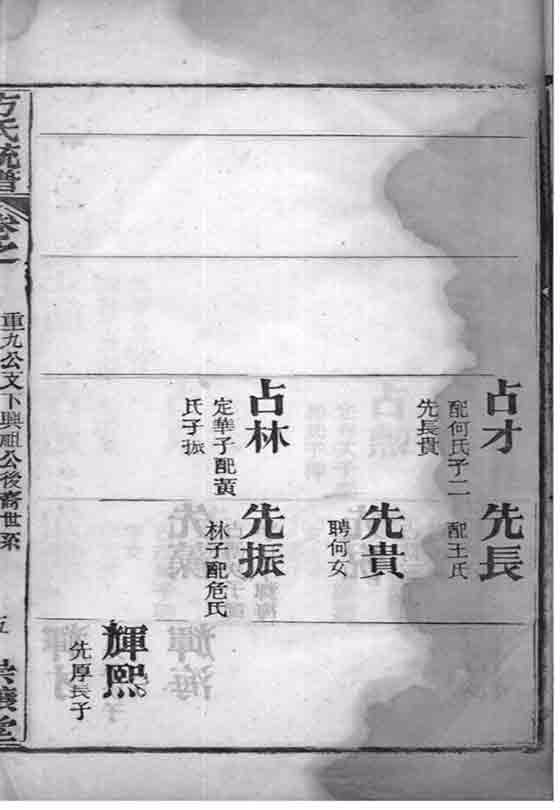 占才
配何氏子二
先長貴
占林
定華子配黃
氏子振
先長
配王氏
先貴
聘何女
先振
林子配危氏
輝熙
先厚長子
方氏統譜
卷之一
重九公文下興祖公後裔世系
五